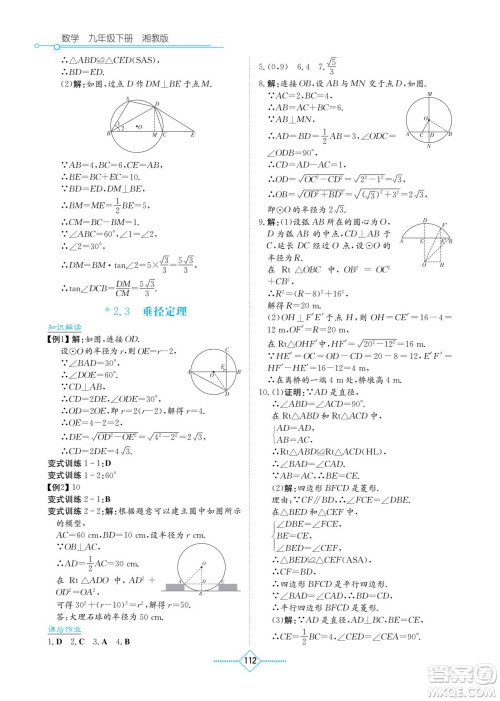 数学 九年级下册 湘教版
∴△ABD≌△CED(SAS)
∴BD=ED.
(2)解:如图,过点D作DM⊥BE于M
∵AB=4,BC=6,CE=AB
∴BE=BC+EC=10
∵BD=ED,DM⊥BE
∴BM=ME=1/2BE=5
∴CM=BC-BM=1
∵∠ABC=60°
∴∠2=30°
∴DM=BM·tan∠2=5×√3/3=5√3/3
∴tan∠DCB=DM/CM=5√3/3
* 2.3 垂径定理
知识解读
【例1】解:如图,连接OD.
设⊙O的半径为r
∵∠BAD=30°
∴∠DOE=60°
∵AB⊥CD
∴CE=DE,∠DEO=90°
∴OD=2OE,即r=2(r-2),解得r=4
∴OE=2
∴DE=√(OD²-OE²)=√(4²-2²)=2√3
∴CD=2DE=4√3
变式训练1-1:D
变式训练1-2:60°
【例2】10
变式训练2-1:D
变式训练2-2:解:如图所示
的模型,
AC=60 cm,半径为r cm,
∵OB⊥AC
∴AD=1/2AC=30 cm
在Rt△ADO中,AD²+
OD²=OA²
可得30²+(r-10)²=r²
解得r=50,2r=100(cm)
答:大理石球的半径为100 cm.
课后作业
1.D 2.C 3.A 4.B
5.(0,9) 6.4 7.√3
8.解:连接OB,OC,设AB与
MN交于点D
∵AC=2,BC=4
∴AB=AC+BC=6
∵M是弧AB的中点
∴AD=BD=3
∴CD=AD-AC=1,∠ODC=
∠ODB=90°
∴OD=√(OC²-CD²)=√(2²-1²)=√3
∴OB=√(OD²+BD²)=√((√3)²+3²)=2√3
即⊙O的半径为2√3
9.解:(1)设弧AB所在的圆心为O,
D为弧AB的中点,CD⊥AB
于C,延长DC经过O点
设⊙O的半径为R
在Rt△OBC中,OB²=OC²
+CB²
∴R²=(R-8)²+16²,解得R=20
(2)OH⊥F′E′于H,则OH=CE′=16-4=12,
OF′=R=20
在Rt△OHF′中,HF′=√(20²-12²)=16
∵HE′=OC=OD-CD=20-8=12,E′F′=
HF′-HE′=16-12=4(m)
∴在离桥的一端4 m处,桥墩高4 m.
10.(1)证明:∵AD是⊙O的直径
∴∠ABD=∠ACD=90°
在Rt△ABD和Rt△ACD中
{AB=AC
AD=AD
∴Rt△ABD≌Rt△ACD(HL)
∴∠BAD=∠CAD
∵AB=AC
∴BE=CE.
(2)解:四边形BFCD是菱形.
证明:∵AD是直径,AB=AC
∴AD⊥BC,BE=CE
∵CF∥BD
∴∠FCE=∠DBE
在△BED和△CEF中
{∠FCE=∠DBE
BE=CE
∠BED=∠CEF
∴△BED≌△CEF(ASA)
∴CF=BD
∴四边形BFCD是平行四边形
∵∠BAD=∠CAD
∴BD=CD
∴平行四边形BFCD是菱形.
(3)解:∵AD是⊙O的直径,AD⊥BC,BE
=CE
∴CE=1/2BC=1/2×8=4
112